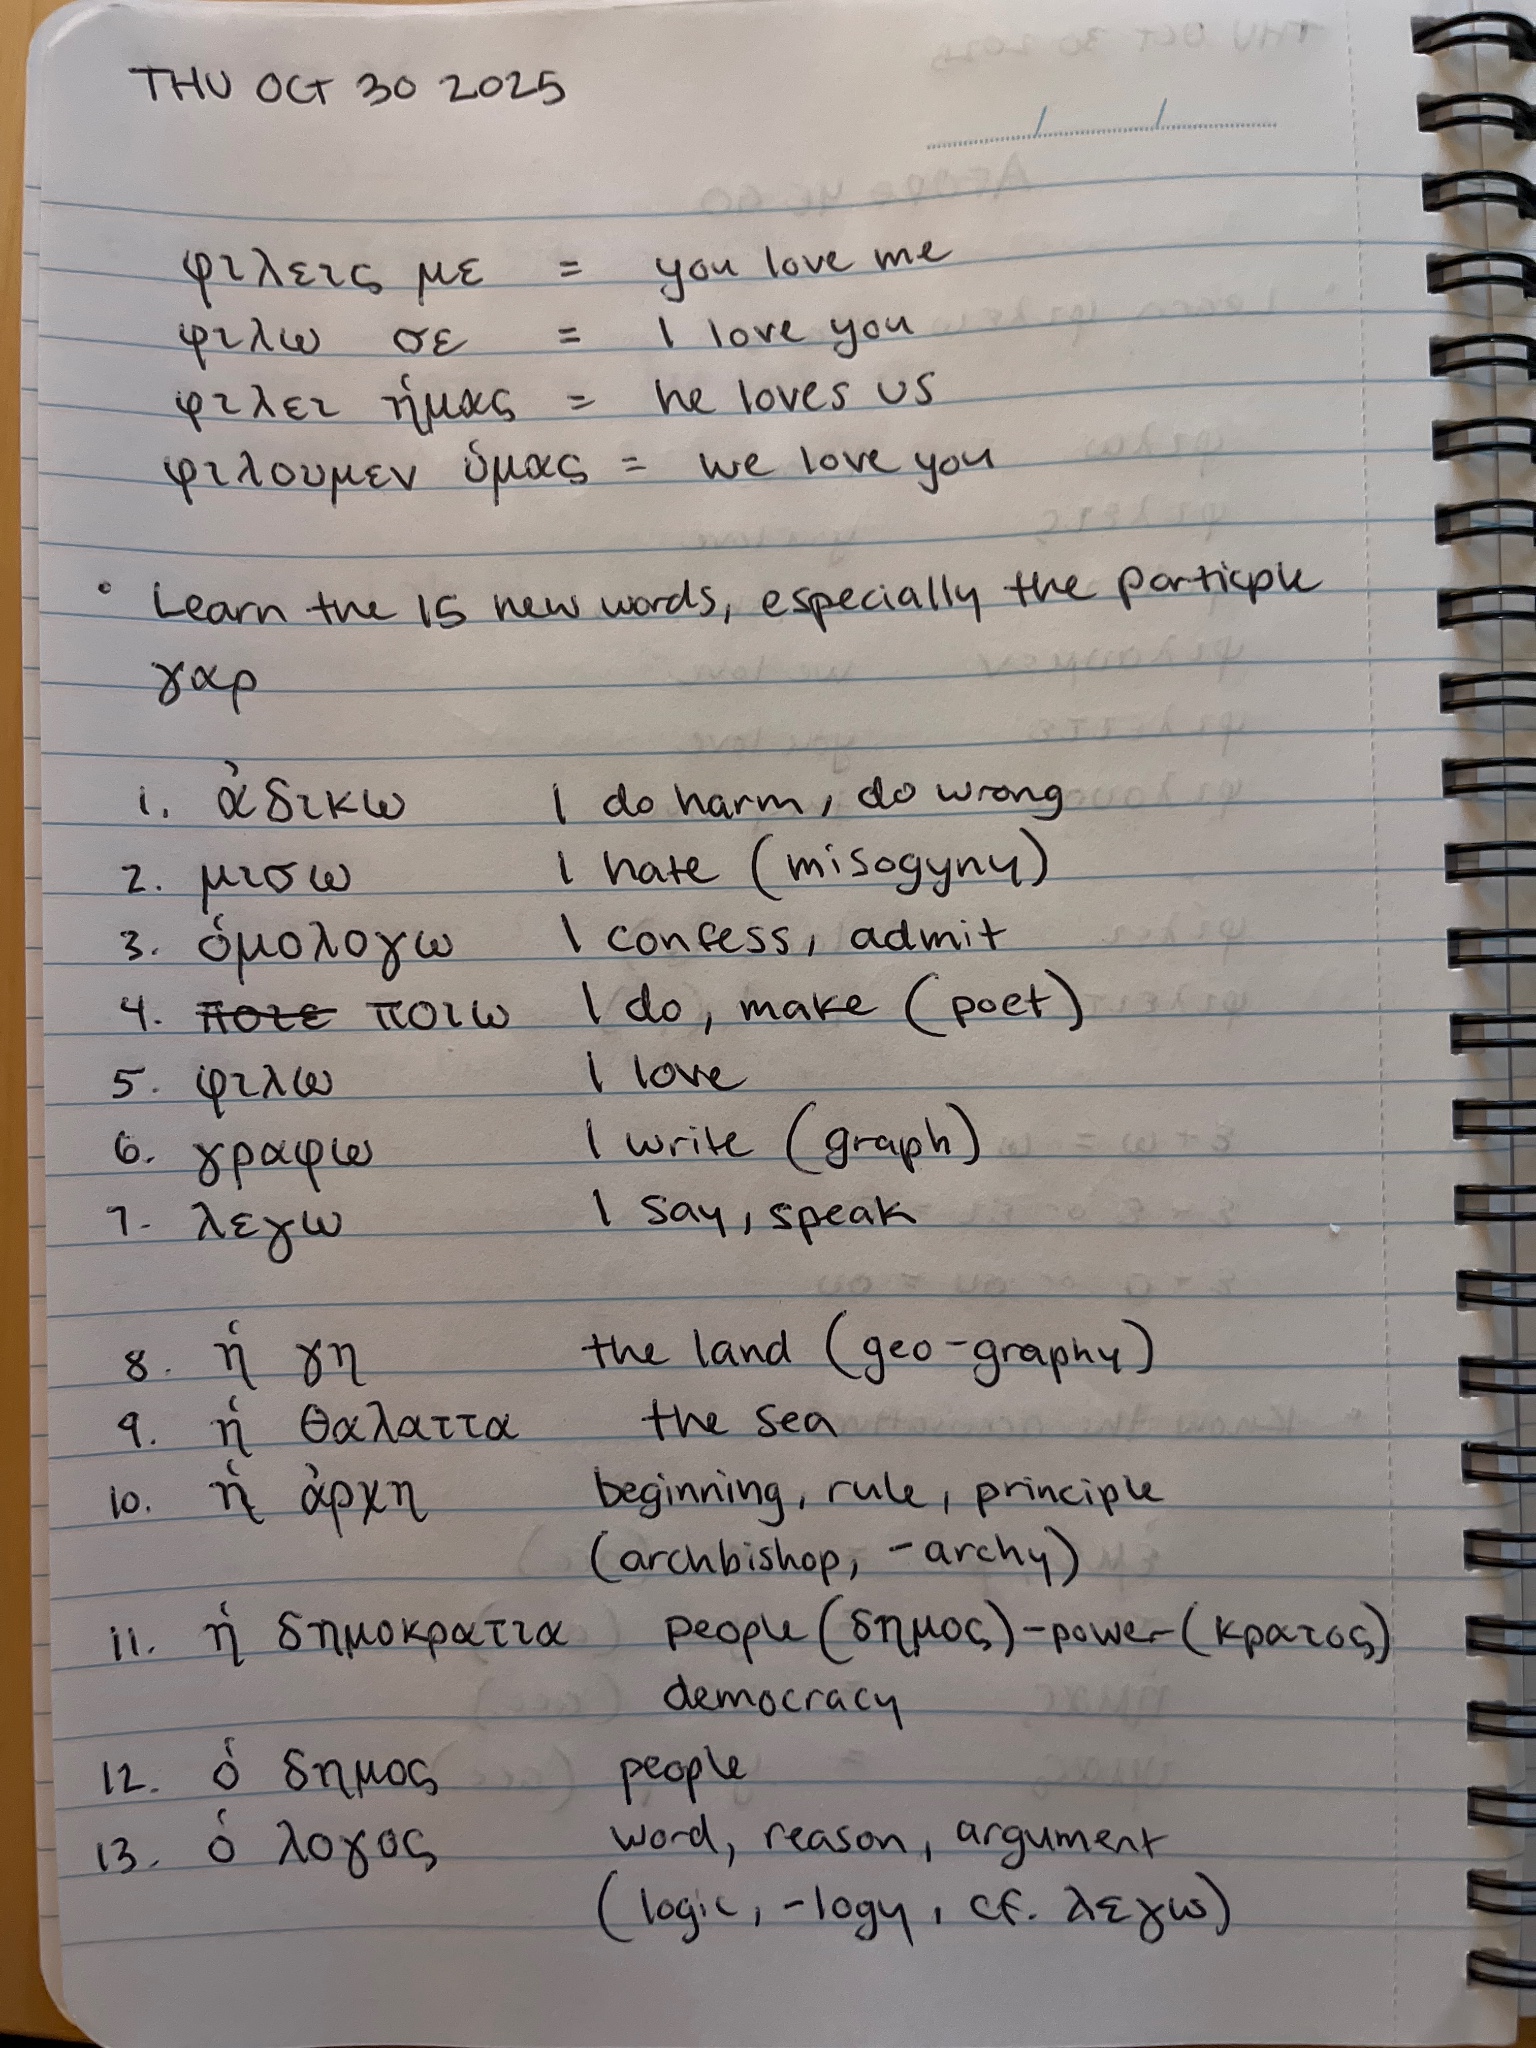 THU OCT 30 2025
φιλεις με = you love me
φιλω σε = I love you
φιλει ἡμας = he loves us
φιλουμεν ὑμας = we love you
• Learn the 15 new words, especially the particple
γαρ
1. ἀδικω I do harm, do wrong
2. μισω I hate (misogyny)
3. ὁμολογω I confess, admit
4. ποιε ποιω I do, make (poet)
5. φιλω I love
6. γραφω I write (graph)
7. λεγω I say, speak
8. ἡ γη the land (geo-graphy)
9. ἡ θαλαττα the sea
10. ἡ ἀρχη beginning, rule, principle
(archbishop, -archy)
11. ἡ δημοκρατια people (δημος)-power-(κρατος)
democracy
12. ὁ δημος people
13. ὁ λογος word, reason, argument
(logic, -logy, cf. λεγω)